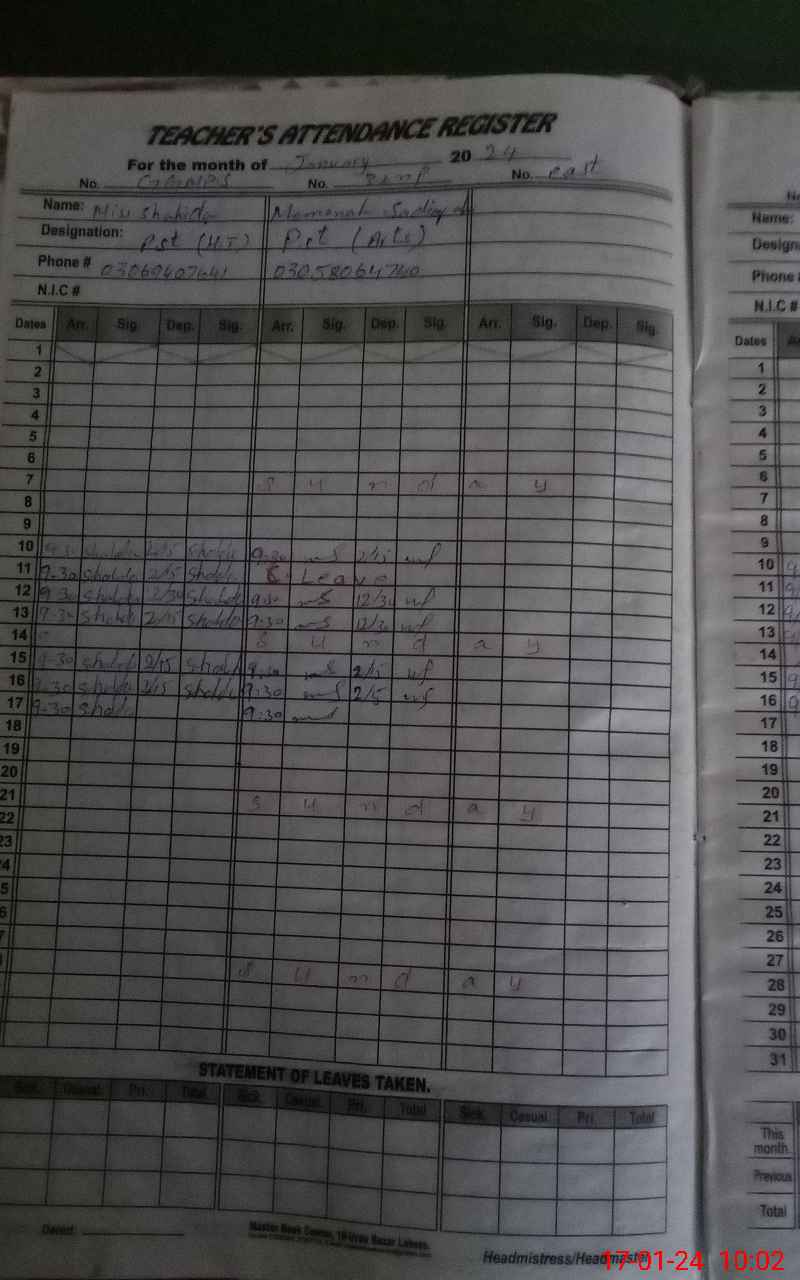 TEACHER'S ATTENDANCE REGISTER
For the month of January 2024
No. No. No. East
Name: Miss Shahida
Designation: Pst (H.T) Pst (Arts)
Phone #
N.I.C #
Dates Arr. Sig. Dep. Sig. Arr. Sig. Dep. Sig. Arr. Sig. Dep. Sig.
1
2
3
4
5
6
7 S u n d a y
8
9
10 9-30 Shahida 2/15 Shahida 9-30 2/15
11 9-30 Shahida 2/15 Shahida C. Leave
12 9-30 Shahida 2/30 Shahida 9-30 12/30
13 9-30 Shahida 2/15 Shahida 9-30 12/30
14 S u n d a y
15 9-30 Shahida 2/15 Shahida 9-30 2/15
16 9-30 Shahida 2/15 Shahida 9-30 2/15
17 9-30 Shahida 9-30
18
19
20
21 S u n d a y
22
23
24
S u n d a y
STATEMENT OF LEAVES TAKEN.
Sick. Casual. Pri. Total Sick. Casual. Pri. Total Sick. Casual. Pri. Total
Dated:
Master Book Centre, 19-Urdu Bazar Lahore.
Headmistress/Headmaster
Name:
Phone #
N.I.C #
Dates
1
2
3
4
5
6
7
8
9
10
11
12
13
14
15
16
17
18
19
20
21
22
23
24
25
26
27
28
29
30
31
This month.
Previous
Total
17-01-24 10:02